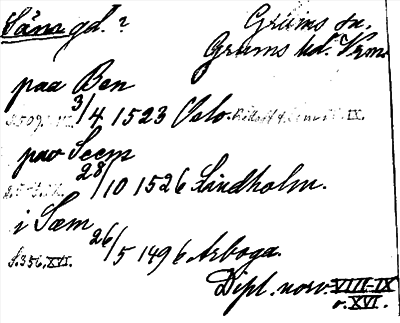 Säm gd.?
Grums sn.
Grums hd. Vrml.
paa Ben
3/4 1523 Oslo.
paa Seem
28/10 1526 Lindholm.
i Sæm
S.356, XVI. 26/5 1496 Arboga.
Dipl. norv. VIII-IX
o. XVI.